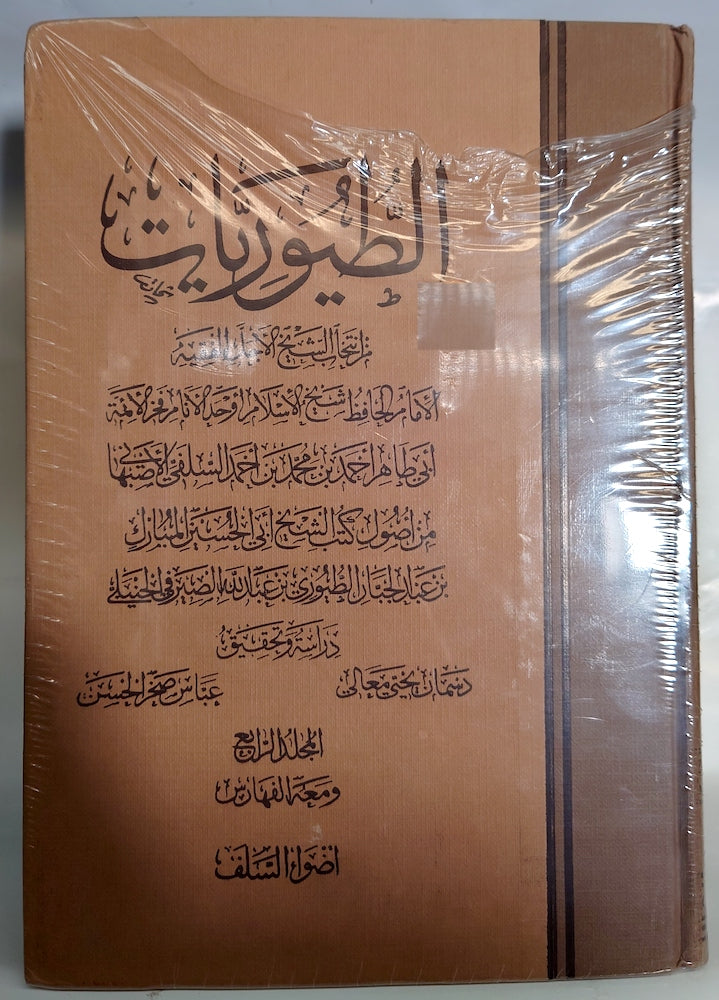 الطُّيُورِيَّات
من انتخاب الشيخ الأجل الفقيه
الإمام الحافظ شيخ الإسلام أوحد الأنام فخر الأئمة
أبي طاهر أحمد بن محمد بن أحمد السلفي الأصبهاني
من أصول كتب الشيخ أبي الحسين المبارك
بن عبد الجبار الطيوري بن عبد الله الصيرفي الحنبلي
دراسة وتحقيق
دسمان يحيى معالي عباس صخر الحسن
المجلد الرابع
ومعه الفهارس
أضواء السلف